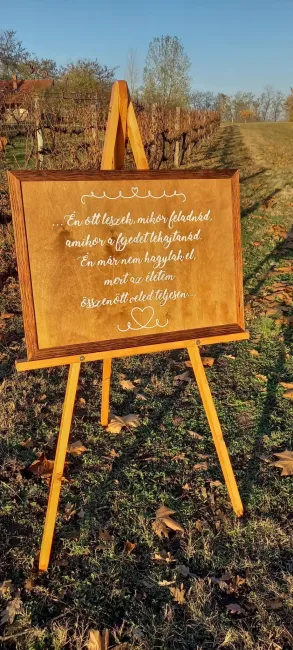 ...Én ott leszek, mikor feladnád,
amikor a fejedet lehajtanád.
Én már nem hagylak el,
mert az életem
összenőtt veled teljesen...